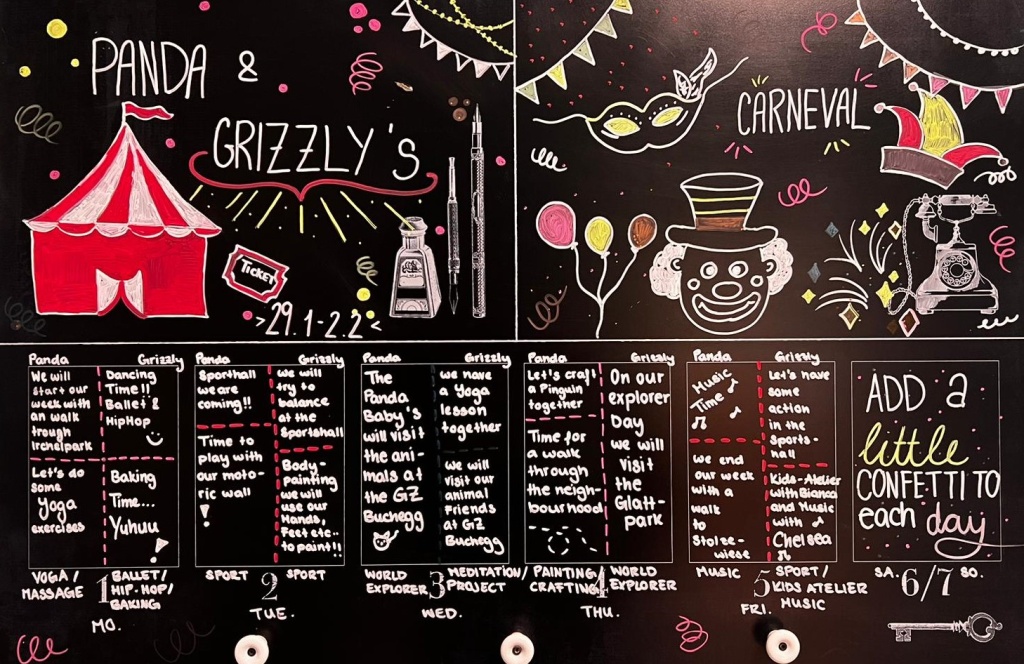 PANDA &
GRIZZLY's
TICKET
>29.1-2.2<
CARNEVAL
Panda
We will
start our
week with
an walk
trough
Irchelpark
Let's do
some
Yoga
exercises
YOGA/
MASSAGE
Grizzly
Dancing
Time!!
Ballet &
HipHop
Baking
Time...
Yuhuu
!
BALLET/
HIP-HOP/
BAKING
1
MO.
Panda
Sporthall
we are
coming!!
Time to
play with
our moto-
ric wall
!
SPORT
Grizzly
we will
try to
balance
at the
Sportshall
Body-
Painting
we will
use our
Hands,
Feet etc..
to paint!!
SPORT
2
TUE.
Panda
The
Panda
Baby's
will visit
the ani-
mals at
the GZ
Buchegg
WORLD
EXPLORER
Grizzly
we have
a Yoga
lesson
together
We will
visit our
animal
Friends
at GZ
Buchegg
MEDITATION/
PROJECT
3
WED.
Panda
Let's craft
a Pinguin
together
Time for
a walk
through
the neigh-
bourhood
PAINTING/
CRAFTING
Grizzly
On our
explorer
Day
we will
visit
the
Glatt-
park
WORLD
EXPLORER
4
THU.
Panda
Music
Time
we end
our week
with a
walk
to
Stolze-
wiese
MUSIC
Grizzly
Let's have
some
action
in the
Sports-
hall
Kids-Atelier
with Bianca
and Music
with
Chelsea
SPORT/
KIDS ATELIER
MUSIC
5
FRI.
ADD a
little
CONFETTI TO
each day
SA. 6/7 SO.